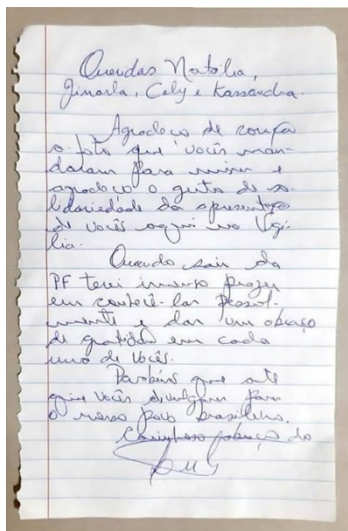 Queridas Natália,
Jimarla, Cely e Kassandra.
Agradeço de coração
a foto que vocês man-
daram para mim e
agradeço o gesto de so-
lidariedade da apresentação
de vocês aqui na Vigi-
lia.
Quando sair da
PF terei imenso prazer
em conhece-las pessoal-
mente e dar um abraço
de gratidão em cada
uma de vocês.
Parabéns pela arte
que vocês divulgam para
o nosso povo brasileiro.
Carinhoso abraço do